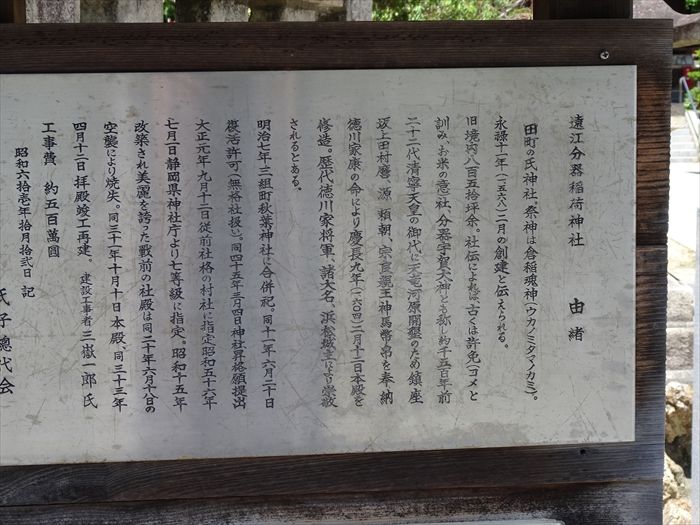 遠江分器稲荷神社　由緒
田町の氏神社、祭神は倉稲魂神(ウカノミタマノカミ)。
永禄十一年(一五六八)二月の創建と伝えられる。
旧境内八百五拾坪余。社伝によれば、古くは許免(ヨメ)と
訓み、お米の意社、分器宇賀大神とも称し、約千五百年前
二十二代清寧天皇の御代に天竜河原開墾のため鎮座
坂上田村麿、源頼朝、宗良親王神馬幣帛を奉納
徳川家康の命により慶長九年(一六〇四)二月十二日本殿を
修造。歴代徳川家将軍、諸大名、浜松城主により崇敬
されるとある。
明治七年三組町秋葉神社に合併祀。同十一年六月二十日
復活許可(無格社扱)。同四十五年三月四日神社昇格願提出
大正元年九月十二日従前社格の村社に指定昭和五十六年
七月一日静岡県神社庁より七等級に指定。昭和十五年
改築され美麗を誇った戦前の社殿は同二十年六月十八日の
空襲により焼失。同三十一年十月十日本殿、同三十三年
四月十二日拝殿竣工再建、建設工事者三嶽一郎氏
工事費　約五百萬圓
昭和六拾壱年拾月拾弐日　記
氏子總代会